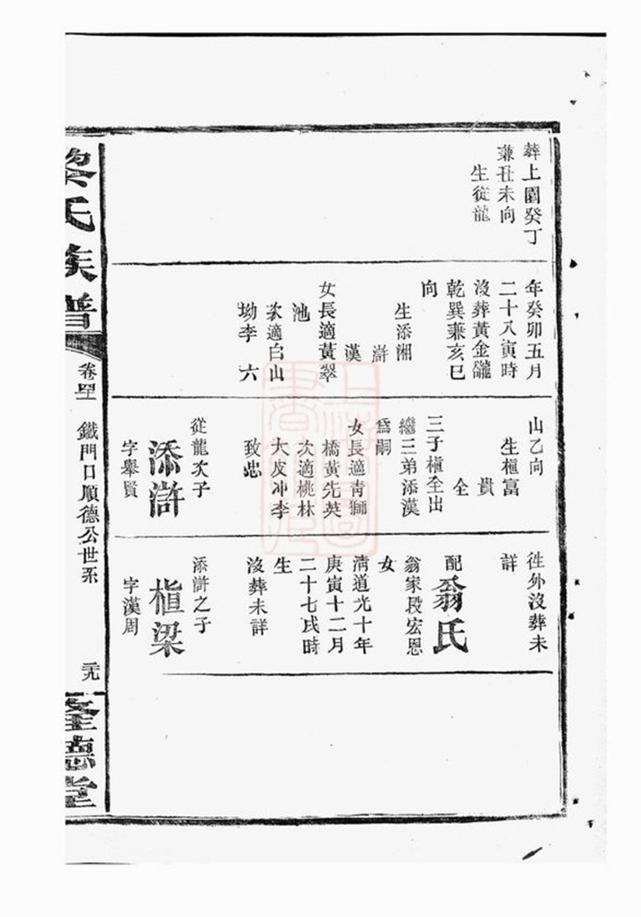 葬上園癸丁
兼丑未向
生從龍
年癸卯五月
二十八寅時
沒葬黃金隴
乾巽兼亥巳
向
生添湘
滸
漢
女長適黃翠
池
次適白山
坳李六
山乙向
生楦富
貴
全
三子楦全出
繼三弟添漢
爲嗣
女長適靑獅
橋黃先英
次適桃林
大皮冲李
致忠
從龍次子
添滸
字舉賢
徃外沒葬未
詳
配翁氏
翁家段宏恩
女
淸道光十年
庚寅十二月
二十七戌時
生
沒葬未詳
添滸之子
楦梁
字漢周
黎氏族譜
卷四十
鐵門口順德公世系
德堂